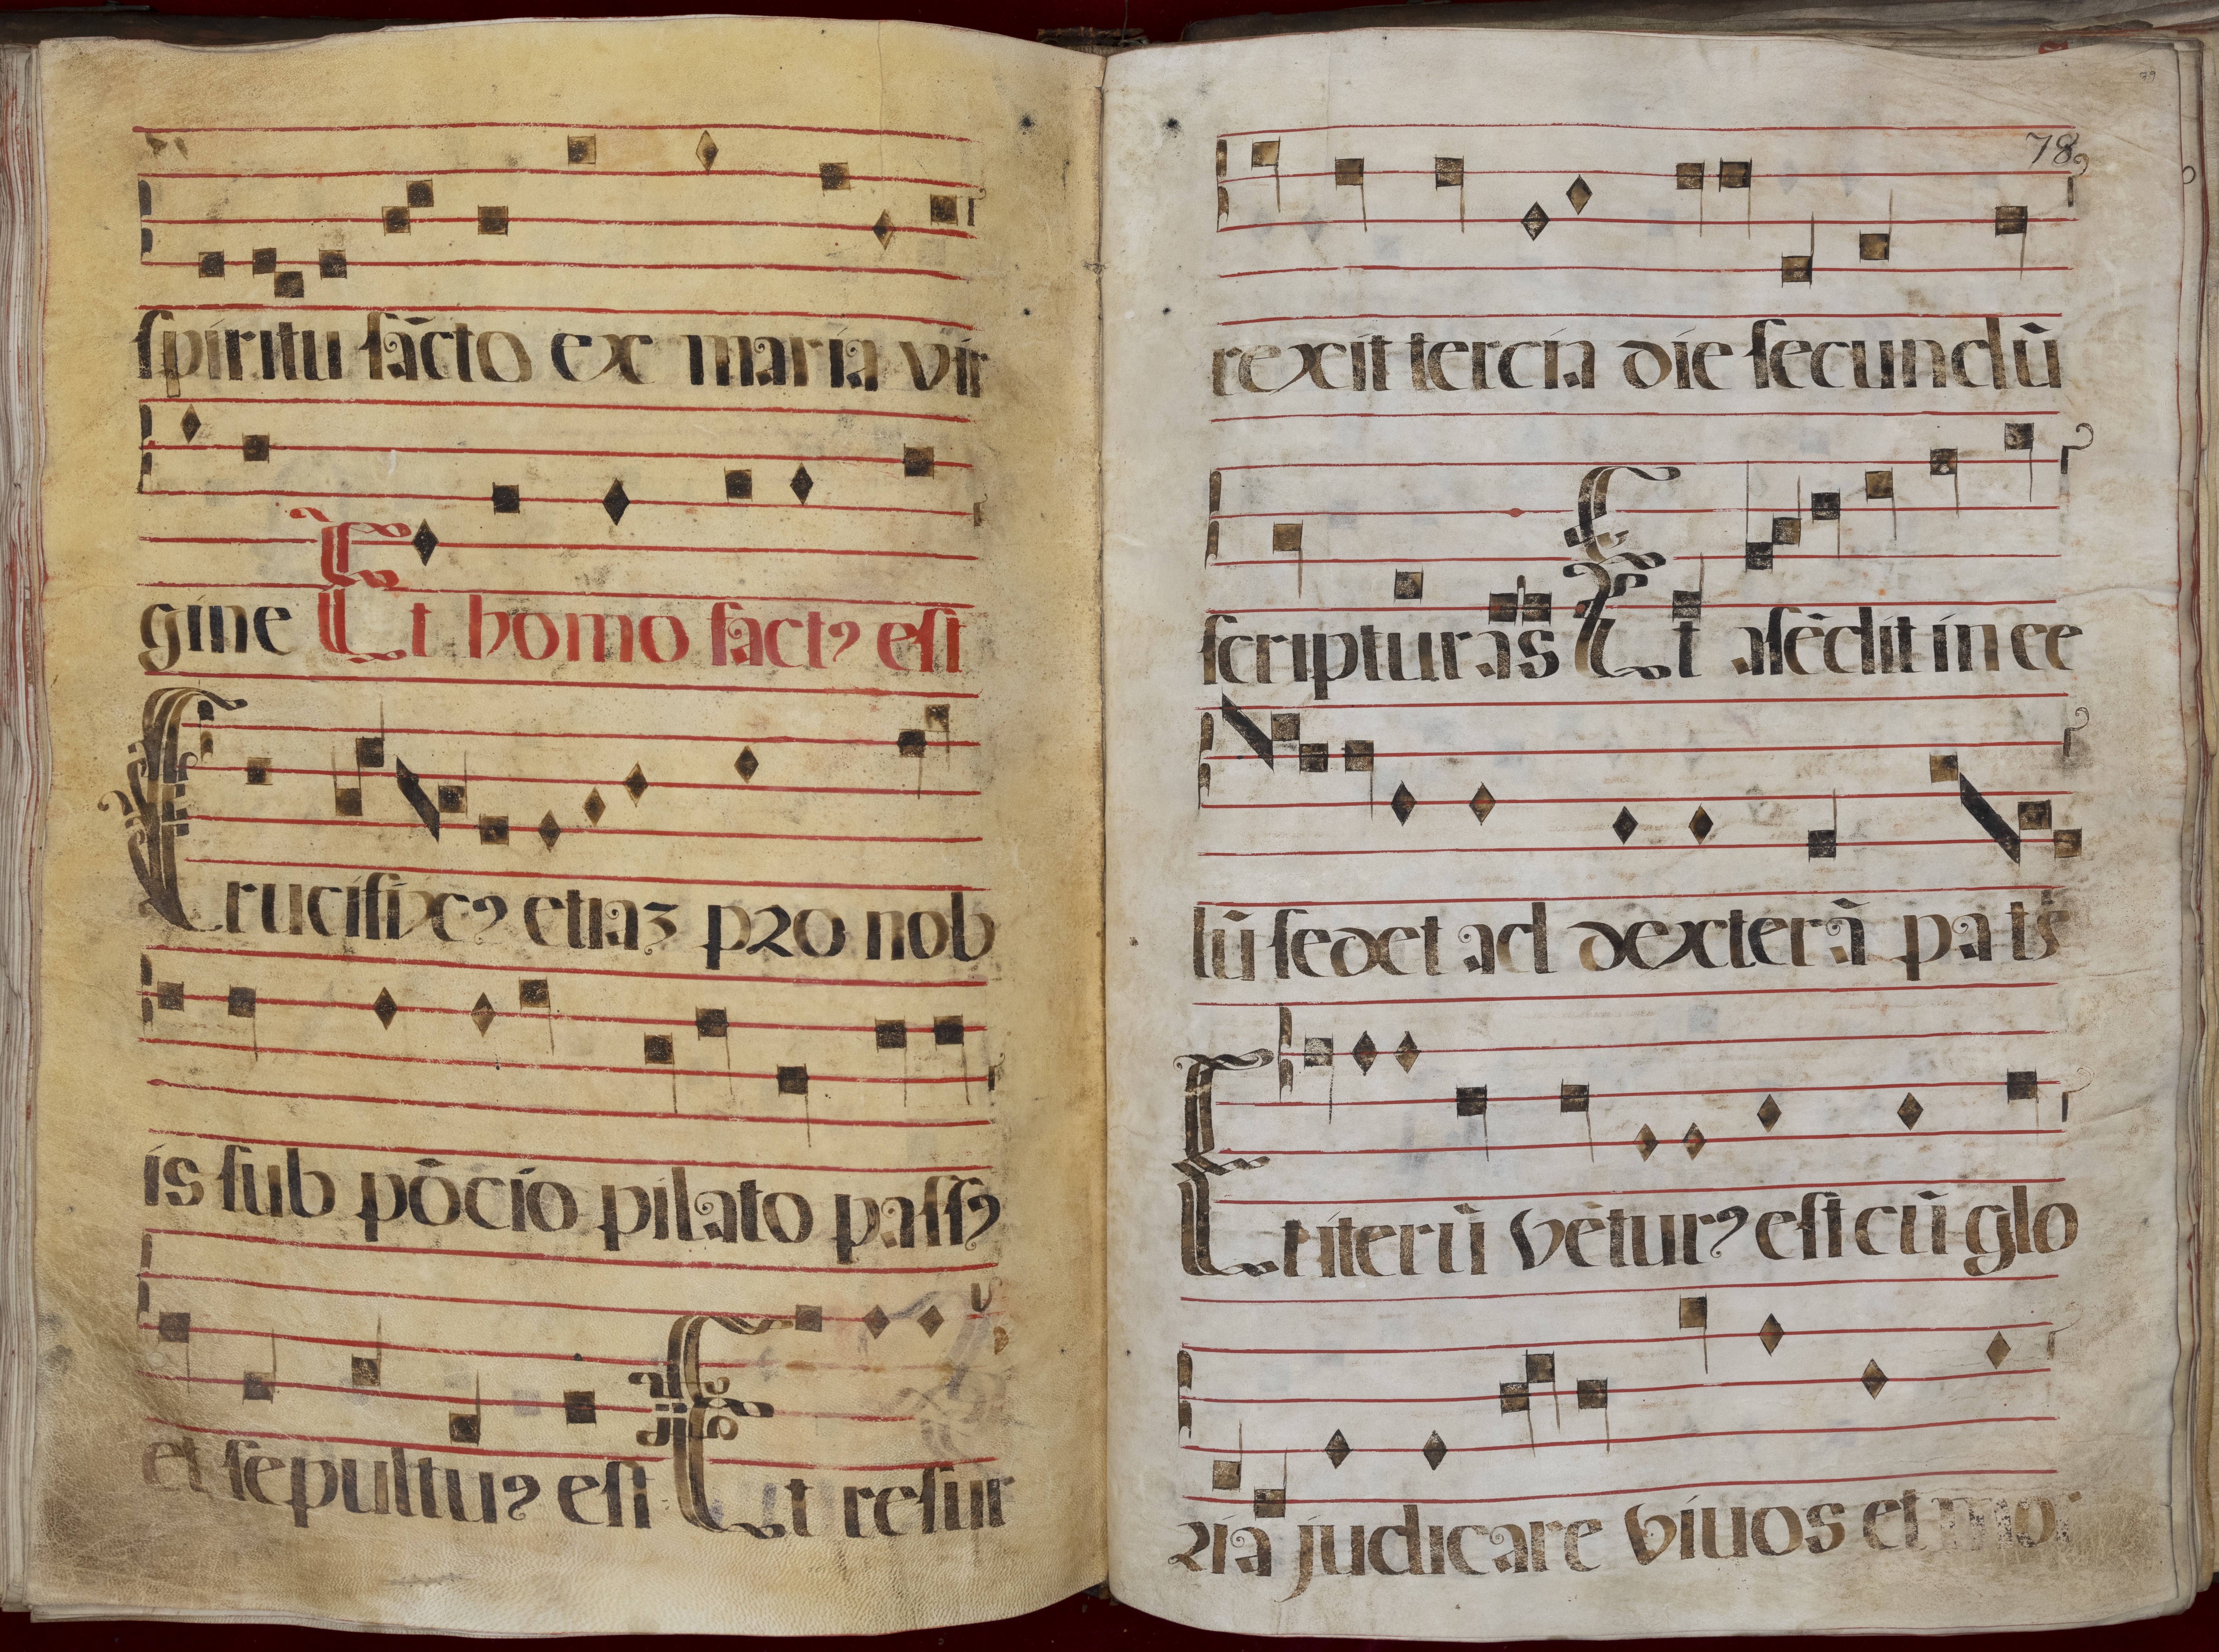 spiritu sācto ex maria vir
gine Et homo factꝰ est
Crucifixꝰ etiaꝫ pro nob
is sub põcio pilato passꝰ
et sepultuꝰ est Et resur
78
79
rexit tercia die secundũ
scripturas Et asēdit in ce
lũ sedet ad dexterã pa
Et iterũ vēturꝰ est cũ glo
ria judicare viuos et mo